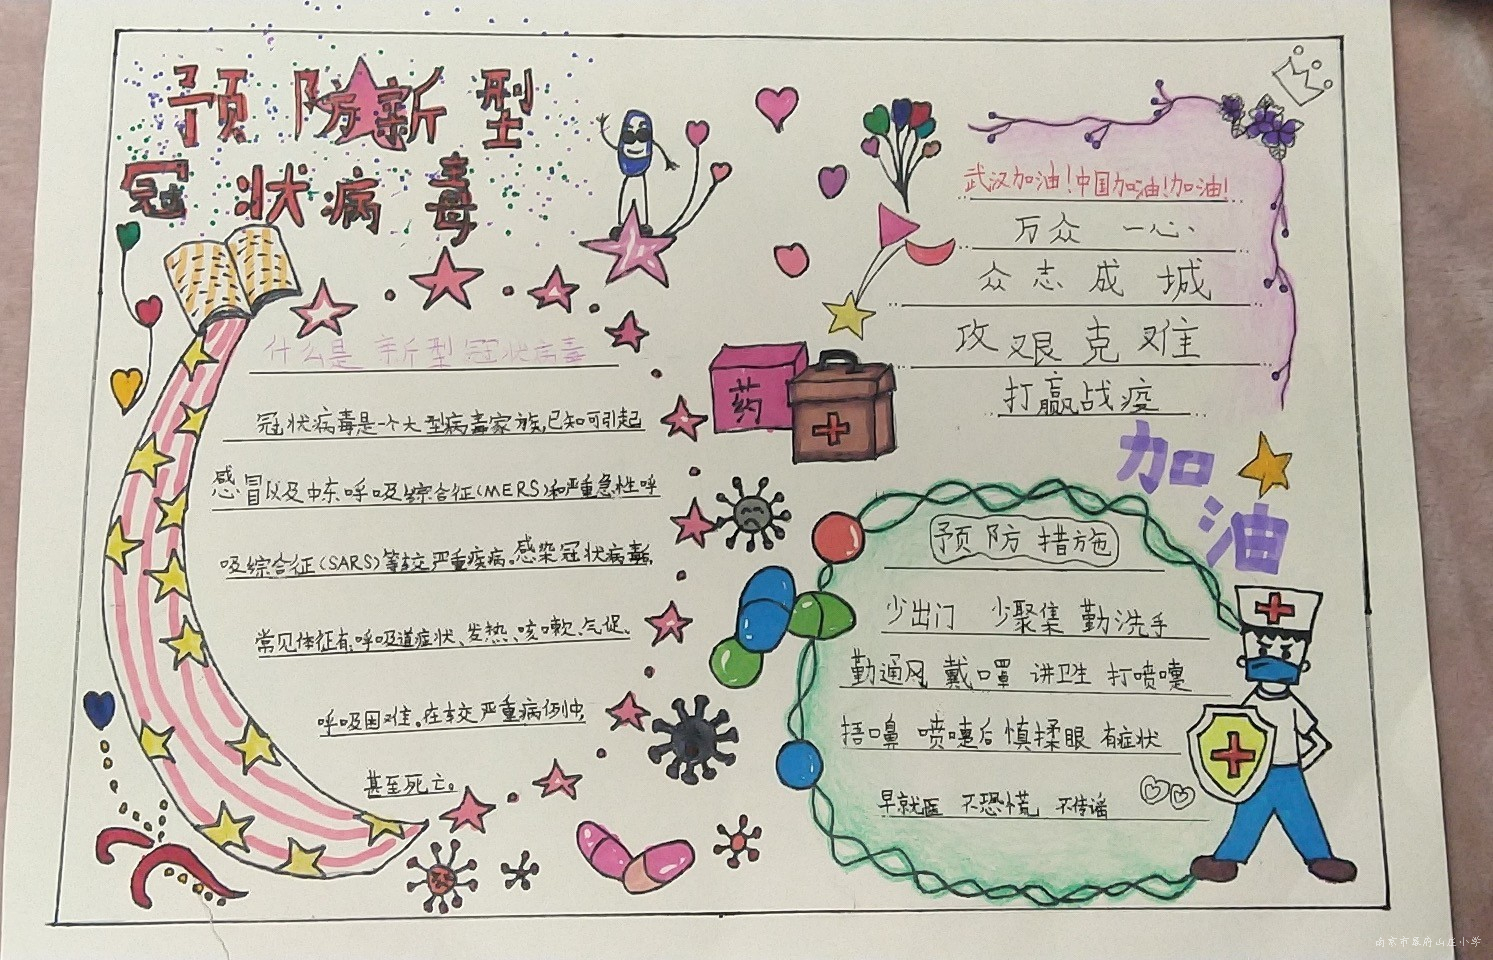 预防新型
冠状病毒
什么是新型冠状病毒
冠状病毒是一个大型病毒家族,已知可引起
感冒以及中东呼吸综合征(MERS)和严重急性呼
吸综合征(SARS)等较严重疾病。感染冠状病毒后,
常见体征有:呼吸道症状、发热、咳嗽、气促、
呼吸困难。在较严重病例中,
甚至死亡。
药
武汉加油!中国加油!加油!
万众一心
众志成城
攻艰克难
打赢战疫
加
油
预防措施
少出门 少聚集 勤洗手
勤通风 戴口罩 讲卫生 打喷嚏
捂口鼻 喷嚏后慎揉眼 有症状
早就医 不恐慌 不传谣